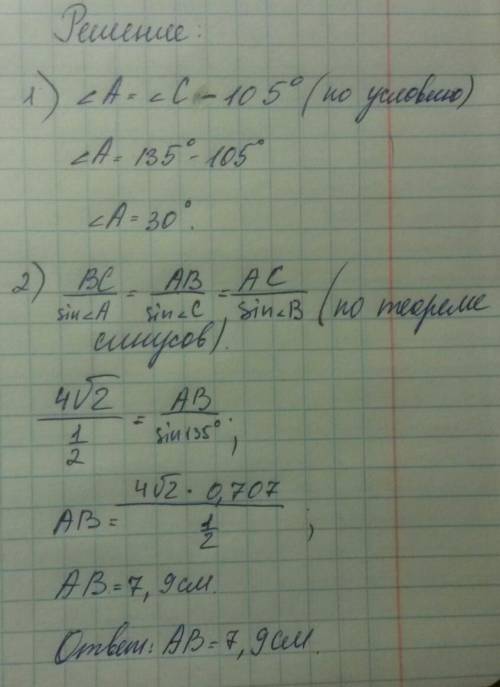 Решение:
1) ∠A = ∠C - 105° (по условию)
∠A = 135° - 105°
∠A = 30°.
2) BC/sin∠A = AB/sin∠C = AC/sin∠B (по теореме
синусов).
4√2/(1/2) = AB/sin135°;
AB = (4√2 · 0,707)/(1/2);
AB = 7,9см.
Ответ: AB = 7,9см.